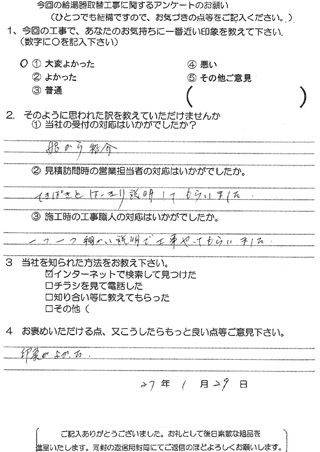 今回の給湯器取替工事に関するアンケートのお願い
(ひとつでも結構ですので、お気づきの点等をご記入ください。)
1、今回の工事で、あなたのお気持ちに一番近い印象を教えて下さい。
(数字に○を記入下さい)
○ ① 大変よかった ④ 悪い
② よかった ⑤ その他ご意見
③ 普通 ( )
2. そのように思われた訳を教えていただけませんか
① 当社の受付の対応はいかがでしたか?
娘から紹介
② 見積訪問時の営業担当者の対応はいかがでしたか。
てきぱきとはっきり説明してもらいました。
③ 施工時の工事職人の対応はいかがでしたか。
一つ一つ細かい説明で工事やってもらいました。
3 当社を知られた方法をお教え下さい。
☑インターネットで検索して見つけた
□チラシを見て電話した
□知り合い等に教えてもらった
□その他 (
4 お褒めいただける点、又こうしたらもっと良い点等ご意見下さい。
印象がよかった.
27 年 1 月 29 日
ご記入ありがとうございました。お礼として後日素敵な粗品を
進呈いたします。同封の返信用封筒にてご返信のほどよろしくお願いします。